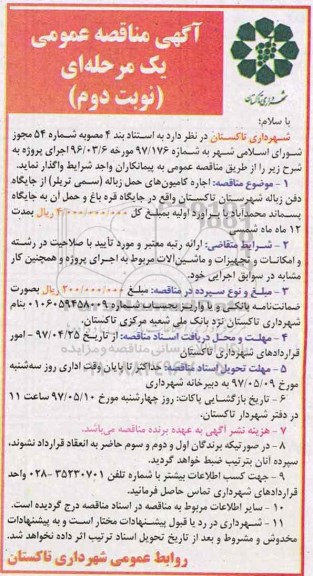 آگهی مناقصه عمومی
یک مرحله‌ای
(نوبت دوم)
شهرداری تاکستان
با سلام؛
شهرداری تاکستان در نظر دارد به استناد بند ۴ مصوبه شماره ۵۴ مجوز
شورای اسلامی شهر به شماره ۹۷/۱۷۶ مورخه ۹۶/۰۳/۶ اجرای پروژه به
شرح زیر را از طریق مناقصه عمومی به پیمانکاران واجد شرایط واگذار نماید.
۱ - موضوع مناقصه: اجاره کامیون‌های حمل زباله (سمی تریلر) از جایگاه
دفن زباله شهرستان تاکستان واقع در جایگاه قره باغ و حمل آن به جایگاه
پسماند محمدآباد با برآورد اولیه بمبلغ کل ۴/۰۰۰/۰۰۰/۰۰۰ ریال بمدت
۱۲ ماه ماه شمسی
۲ - شرایط متقاضی: ارائه رتبه معتبر و مورد تأیید با صلاحیت در رشته
و امکانات و تجهیزات و ماشین‌آلات مربوط به اجرای پروژه و همچنین کار
مشابه در سوابق اجرایی خود.
۳ - مبلغ و نوع سپرده در مناقصه: مبلغ ۲۰۰/۰۰۰/۰۰۰ ریال بصورت
ضمانت‌نامه بانکی و یا واریز بحساب شماره ۰۱۰۶۰۵۹۴۵۸۰۰۹ بنام
شهرداری تاکستان نزد بانک ملی شعبه مرکزی تاکستان.
۴ - مهلت و محل دریافت اسناد مناقصه: از تاریخ ۹۷/۰۴/۲۵ - امور
قراردادهای شهرداری تاکستان
۵ - مهلت تحویل اسناد مناقصه: حداکثر تا پایان وقت اداری روز سه‌شنبه
مورخ ۹۷/۰۵/۰۹ به دبیرخانه شهرداری
۶ - تاریخ بازگشایی پاکات: روز چهارشنبه مورخ ۹۷/۰۵/۱۰ ساعت ۱۱
در دفتر شهردار تاکستان.
۷ - هزینه نشر آگهی به عهده برنده مناقصه می‌باشد.
۸ - در صورتیکه برندگان اول و دوم و سوم حاضر به انعقاد قرارداد نشوند،
سپرده آنان بترتیب ضبط خواهد گردید.
۹ - جهت کسب اطلاعات بیشتر با شماره تلفن ۳۵۲۳۰۷۰۱-۰۲۸ واحد
قراردادهای شهرداری تماس حاصل فرمائید.
۱۰ - سایر اطلاعات مربوط به مناقصه در اسناد مناقصه درج گردیده است.
۱۱ - شهرداری در رد یا قبول پیشنهادات مختار است و به پیشنهادات
مخدوش و مشروط و بعد از تاریخ تحویل اسناد ترتیب اثر داده نخواهد شد.
روابط عمومی شهرداری تاکستان